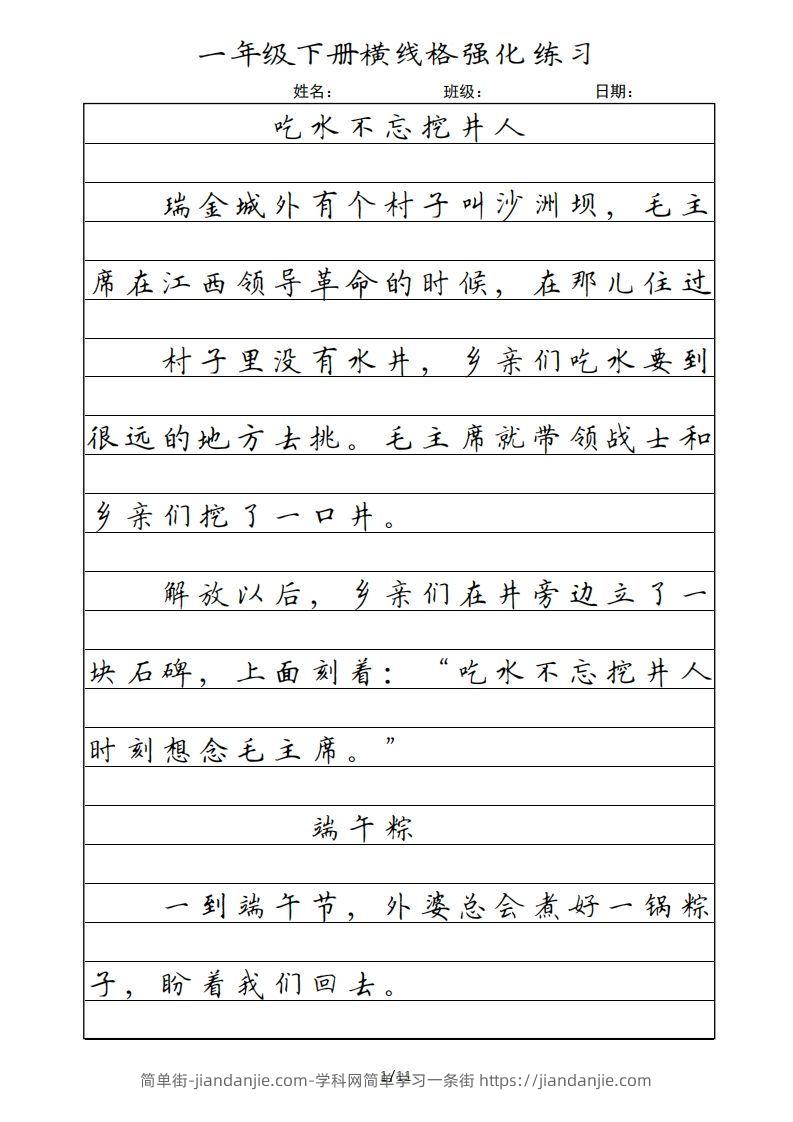 一年级下册横线格强化练习
姓名： 班级： 日期：
吃水不忘挖井人
瑞金城外有个村子叫沙洲坝，毛主
席在江西领导革命的时候，在那儿住过
村子里没有水井，乡亲们吃水要到
很远的地方去挑。毛主席就带领战士和
乡亲们挖了一口井。
解放以后，乡亲们在井旁边立了一
块石碑，上面刻着：“吃水不忘挖井人
时刻想念毛主席。”
端午粽
一到端午节，外婆总会煮好一锅粽
子，盼着我们回去。
1/11
简单街-jiandanjie.com-学科网简单学习一条街 https://jiandanjie.com